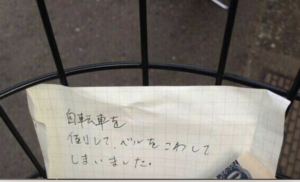 自転車を
倒して、ベルをこわして
しまいました。